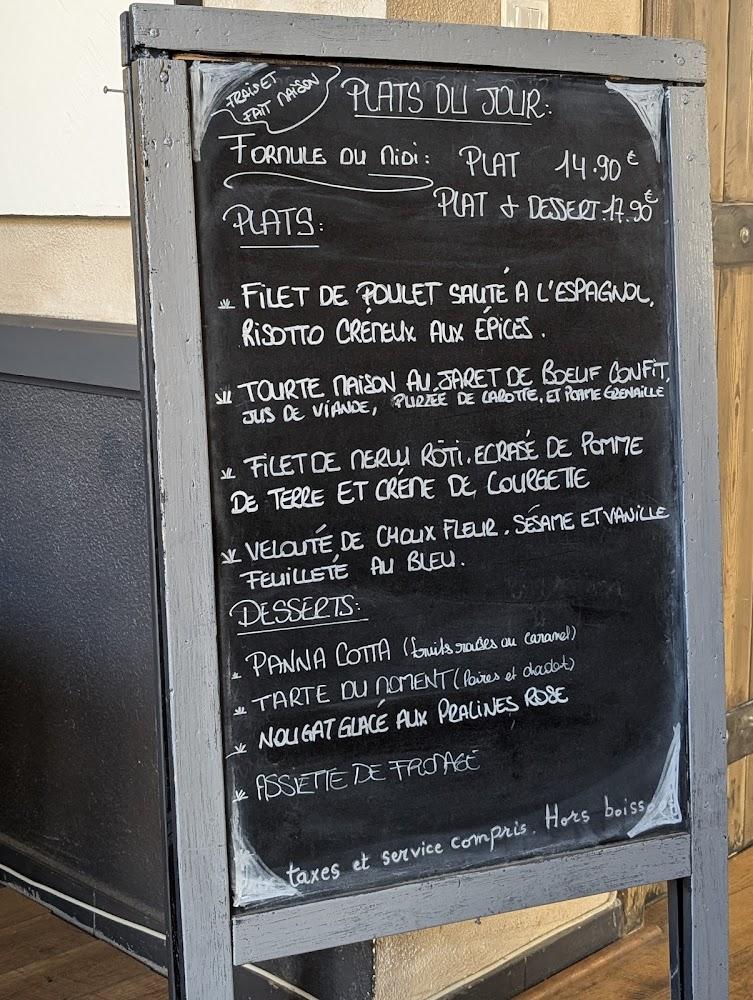 FRAIS ET
FAIT MAISON
PLATS DU JOUR:
FORMULE DU MIDI: PLAT 14.90€
PLAT + DESSERT.17.90€
PLATS:
FILET DE POULET SAUTÉ A L'ESPAGNOL,
RISOTTO CRÉMEUX AUX ÉPICES.
TOURTE MAISON AU JARET DE BOEUF CONFIT,
JUS DE VIANDE, PURZÉE DE CAROTTE, ET POMME GRENAILLE
FILET DE MERLU RÔTI. ECRASÉ DE POMME
DE TERRE ET CRÉME DE COURGETTE
VELOUTÉ DE CHOUX FLEUR. SÉSAME ET VANILLE
FEUILLETÉ AU BLEU.
DESSERTS:
PANNA COTTA (fruits rouges ou caramel)
TARTE DU MOMENT (Poires et chocolat)
NOUGAT GLACÉ AUX PRALINES ROSE
ASSIETTE DE FROMAGE
taxes et service compris. Hors